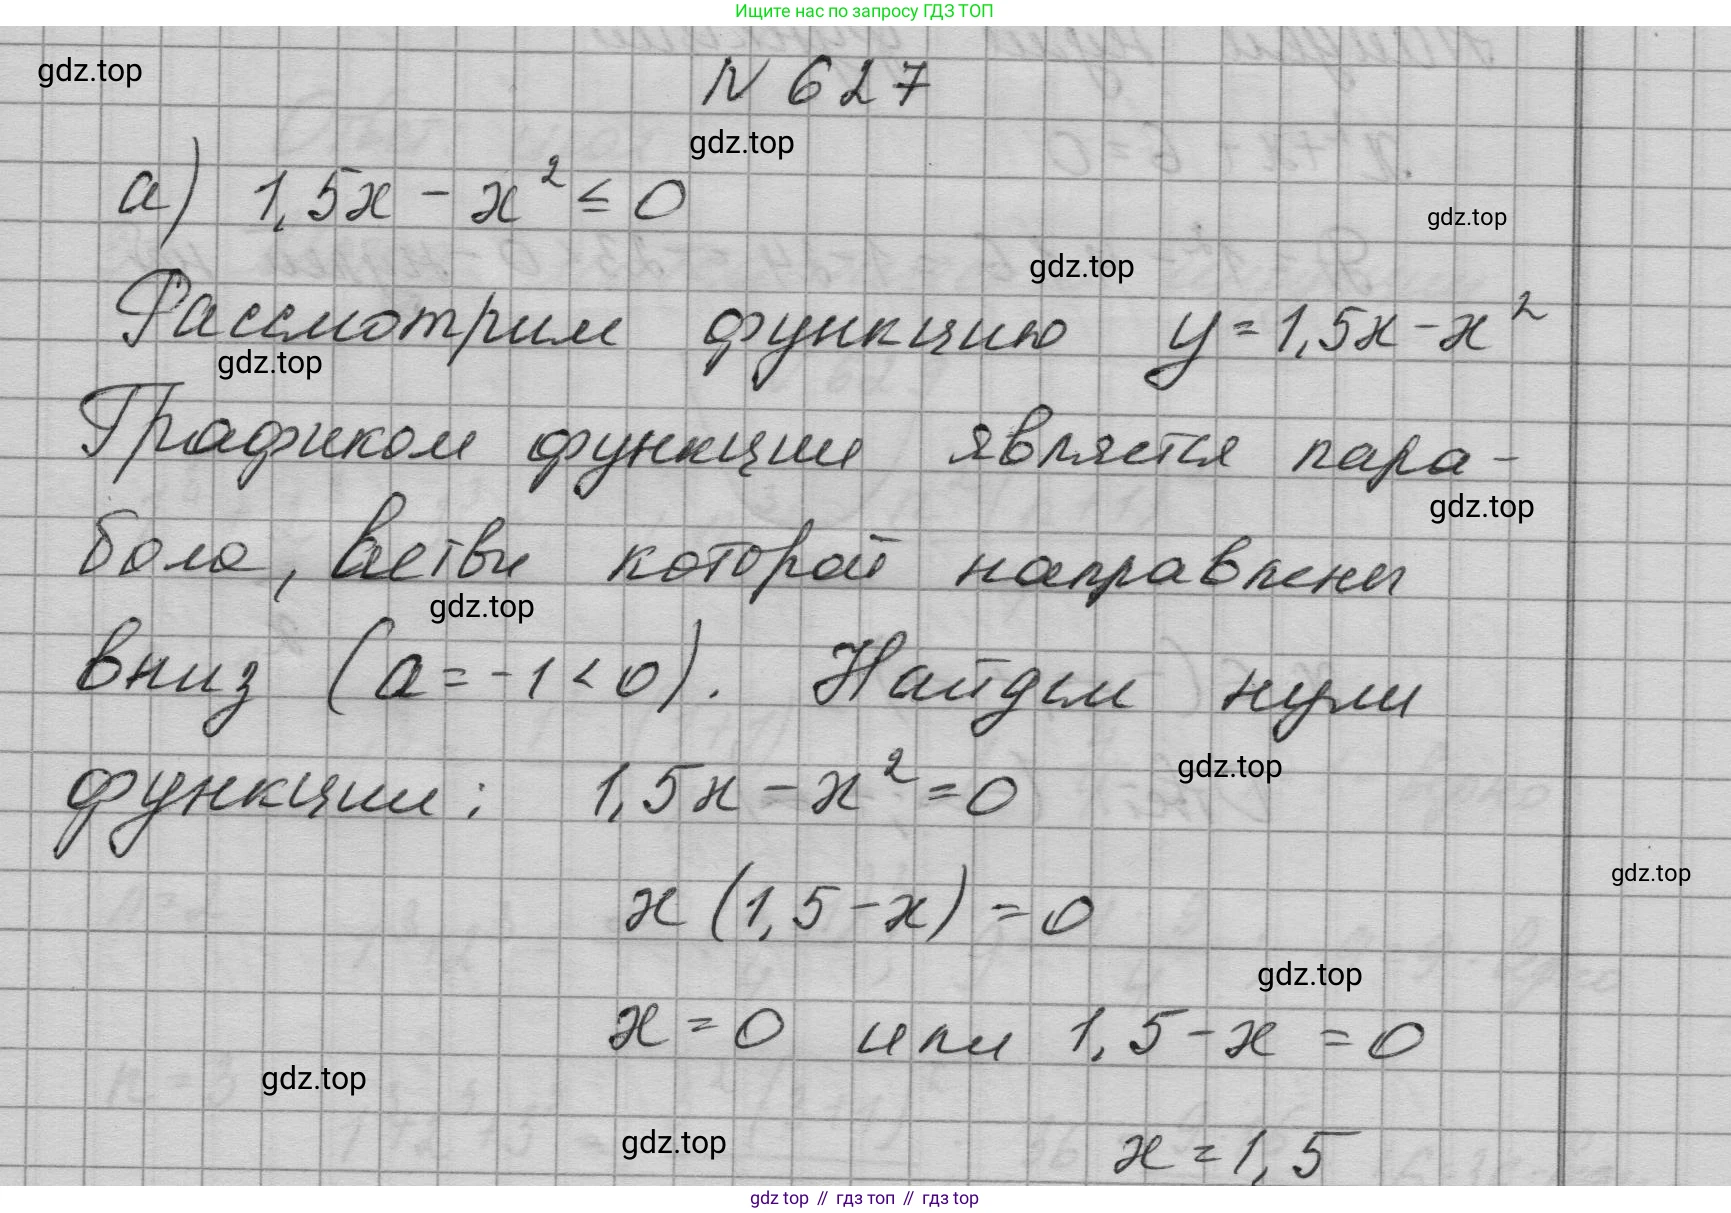 Ищите нас по запросу ГДЗ ТОП
gdz.top
N 627
gdz.top
а) 1,5x - x² ≤ 0
gdz.top
gdz.top
Рассмотрим функцию y = 1,5x - x²
gdz.top
Графиком функции является пара-
gdz.top
бола, ветви которой направлены
gdz.top
вниз (a = -1 < 0). Найдем нули
gdz.top
функции: 1,5x - x² = 0
gdz.top
x (1,5 - x) = 0
gdz.top
x = 0 или 1,5 - x = 0
gdz.top
gdz.top
x = 1,5
gdz top // гдз топ // гдз top